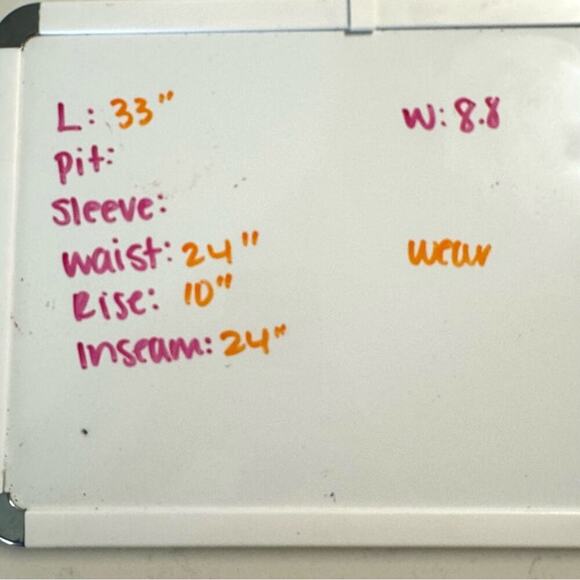 L: 33"
W: 8.8
pit:
Sleeve:
waist: 24"
wear
Rise: 10"
Inseam: 24"